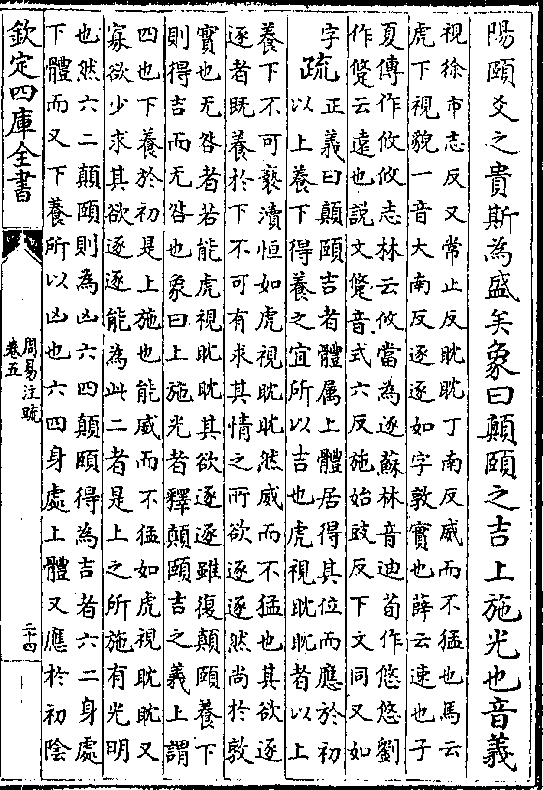 陽頤爻之貴斯為盛矣象曰顛頤之吉上施光也音義
視徐市志反又常止反眈眈丁南反威而不猛也馬云
虎下視貌一音大南反逐逐如字敦實也薛云速也子
夏傳作攸攸志林云攸當為逐蘇林音迪荀作悠悠劉
作跾云遠也說文跾音式六反施始豉反下文同又如
字疏正義曰顛頤吉者體属上體居得其位而應於初
以上養下得養之宜所以吉也虎視眈眈者以上
養下不可褻瀆恒如虎視眈眈然威而不猛也其欲逐
逐者既養於下不可有求其情之所欲逐逐然尚於敦
實也无咎者若能虎視眈眈其欲逐逐雖復顛頤養下
則得吉而无咎也象曰上施光者釋顛頤吉之義上謂
四也下養於初是上施也能威而不猛如虎視眈眈又
寡欲少求其欲逐逐能為此二者是上之所施有光明
也然六二顛頤則為凶六四顛頤得為吉者六二身處
下體而又下養所以凶也六四身處上體又應於初陰
欽定四庫全書
周易注疏
卷五
二十四